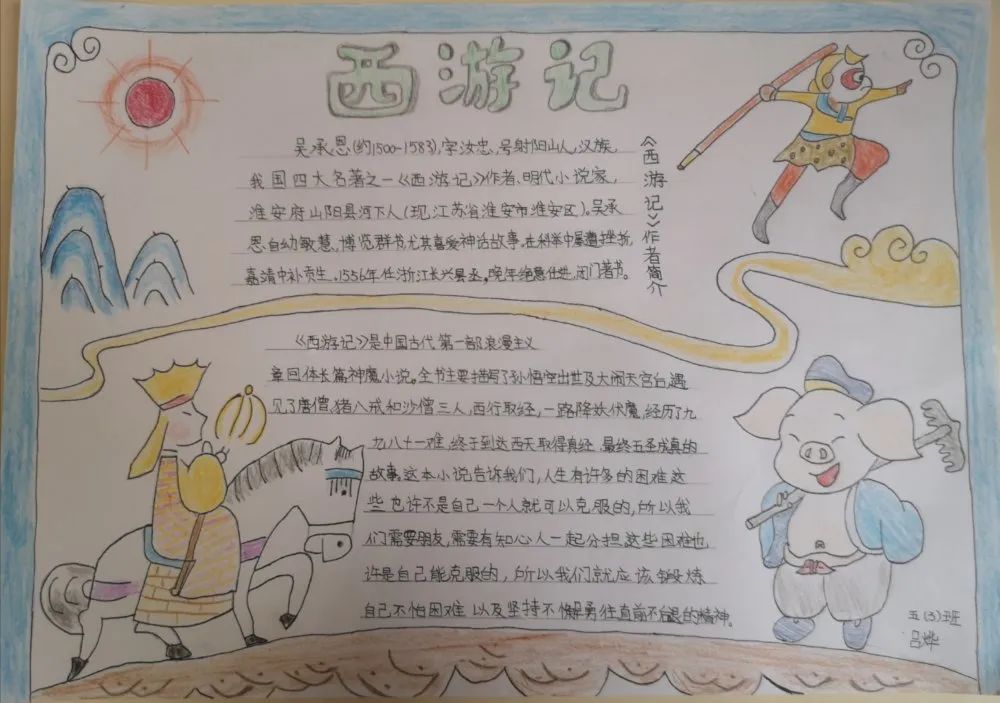 西游记
《西游记》作者简介
吴承恩(约1500-1583),字汝忠,号射阳山人,汉族,
我国四大名著之一《西游记》作者、明代小说家,
淮安府山阳县河下人(现江苏省淮安市淮安区)。吴承
恩自幼敏慧,博览群书尤其喜爱神话故事。在科举中屡遭挫折,
嘉靖中补贡生。1556年任浙江长兴县丞。晚年绝意仕进,闭门著书。
《西游记》是中国古代第一部浪漫主义
章回体长篇神魔小说。全书主要描写了孙悟空出世及大闹天宫后,遇
见了唐僧、猪八戒和沙僧三人,西行取经,一路降妖伏魔,经历了九
九八十一难,终于到达西天取得真经 最终五圣成真的
故事。这本小说告诉我们,人生有许多的困难 这
些也许不是自己一个人就可以克服的,所以我
们需要朋友,需要有知心人一起分担 这些困难也
许是自己能克服的,所以我们就应该锻炼
自己不怕困难 以及坚持不懈勇往直前不退的精神。
五(3)班
吕烨